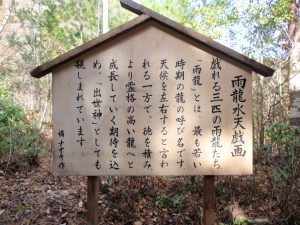 雨龍水天戯画
戯れる三匹の雨龍たち
「雨龍」とは、最も若い
時期の龍の呼び名です
天候を左右すると言わ
れる一方で、徳を積み、
より霊格の高い龍へと
成長していく期待を込
め、「出世神」としても
親しまれています
橘 ナオキ 作